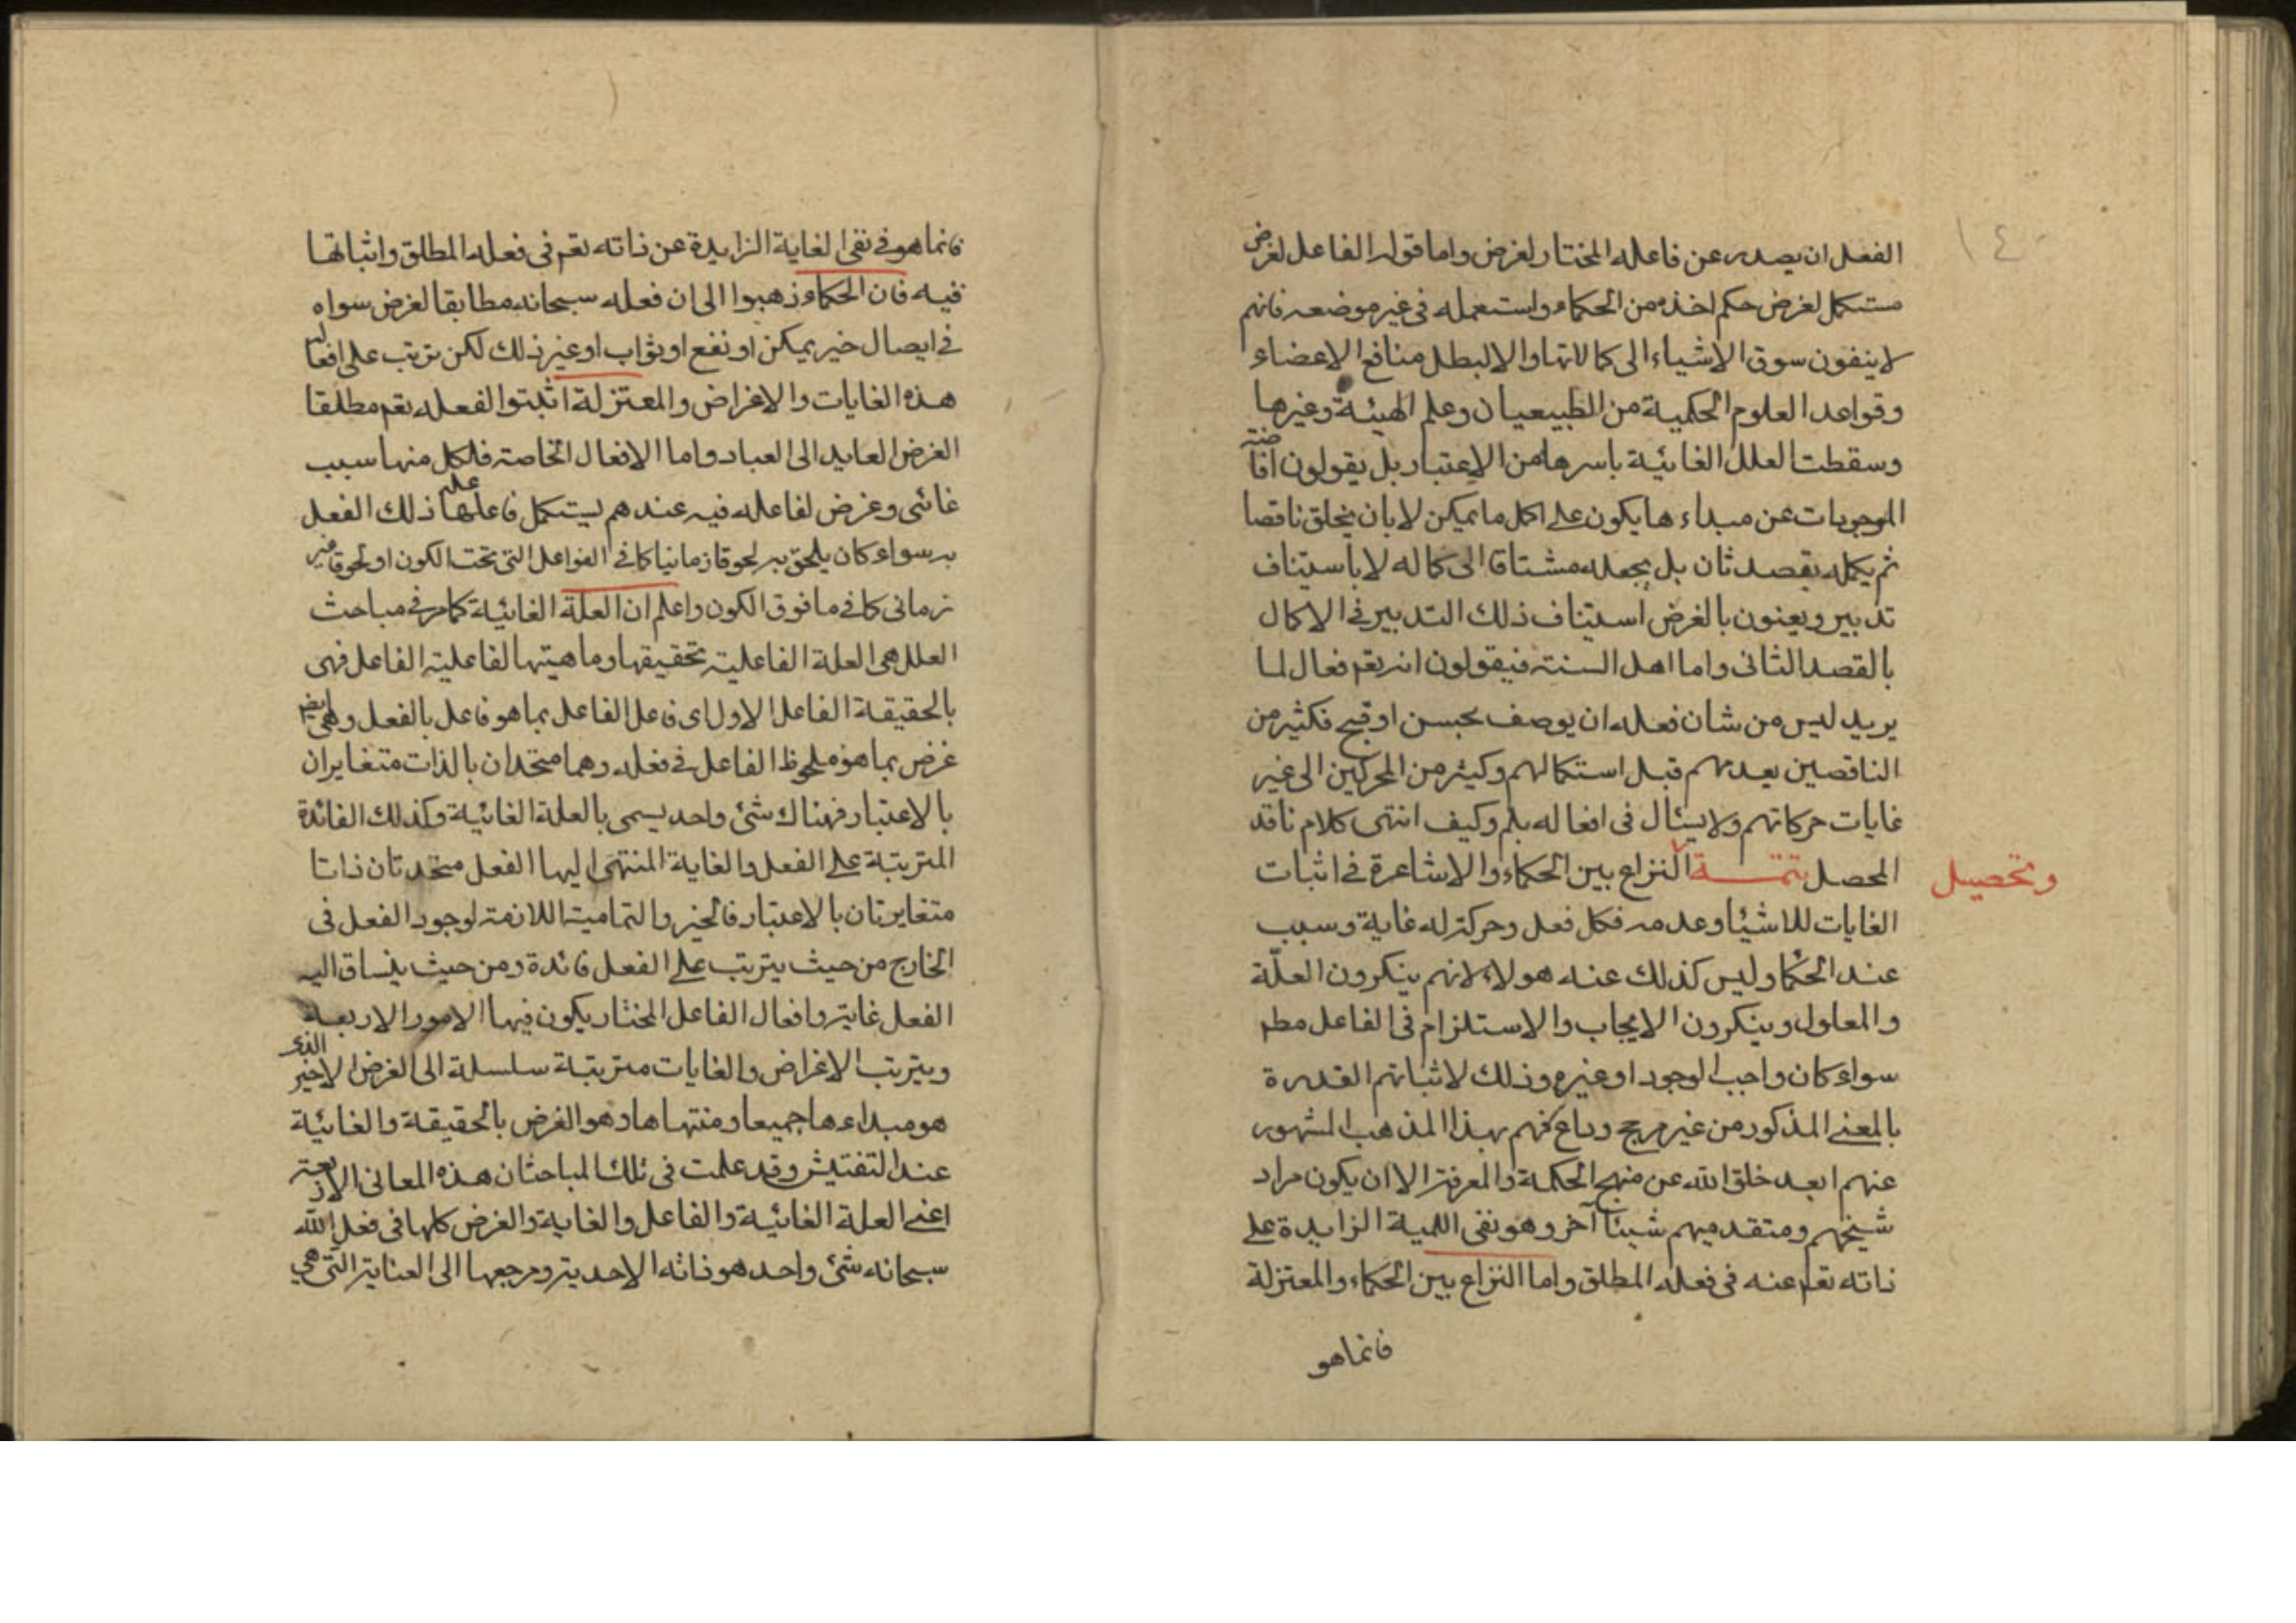 ١٤٠
الفعل ان يصدر عن فاعله المختار لغرض واما قوله الفاعل لغرض
مستكمل لغرض حكم اخذه من الحكماء واستعمله فى غير موضعه فانهم
لا ينفون سوق الاشياء الى كمالاتها والا لبطل منافع الاعضاء
وقواعد العلوم الحكمية من الطبيعيات وعلم الهيئة وغيرها
وسقطت العلل الغائية باسرها من الاعتبار بل يقولون افاضة
الموجودات عن مبداءها يكون على اكمل ما يمكن لا بان يخلق ناقصا
ثم يكمله بقصد ثان بل يجعله مشتاقا الى كماله لا باستيناف
تدبير ويعنون بالغرض استيناف ذلك التدبير فى الاكمال
بالقصد الثانى واما اهل السنة فيقولون انه تعم فعال لما
يريد ليس من شان فعله ان يوصف بحسن او قبح فكثير من
الناقصين يعدمهم قبل استكمالهم وكثير من المحركين الى غير
غايات حركاتهم ولا يسئال فى افعاله بلم وكيف انتهى كلام ناقد
المحصل تتمة النزاع بين الحكماء والاشاعرة فى اثبات
وتحصيل
الغايات للاشيا وعدمه فكل فعل وحركة له غاية وسبب
عند الحكما وليس كذلك عند هولاء لانهم ينكرون العلّة
والمعلول وينكرون الايجاب والاستلزام فى الفاعل مطم
سواء كان واجب الوجود او غيره وذلك لاثباتهم القدرة
بالمعنى المذكور من غير مرجح وداع فهم بهذا المذهب المشهور
عنهم ابعد خلق الله عن منهج الحكمة والمعرفة الا ان يكون مراد
شيخهم ومتقدميهم شيئا آخر وهو نفى اللمية الزايدة على
ذاته تعم عنه فى فعله المطلق واما النزاع بين الحكماء والمعتزلة
فانما هو
فانما هو فى نفى الغاية الزايدة عن ذاته تعم فى فعله المطلق واثباتها
فيه فان الحكماء ذهبوا الى ان فعله سبحانه مطابقا لغرض سواه
فى ايصال خير يمكن او نفع او ثواب او غير ذلك لكن يترتب على افعاله
هذه الغايات والاغراض والمعتزلة اثبتوا لفعله تعم مطلقا
الغرض العايد الى العباد واما الافعال الخاصة فلكل منها سبب
غائى وغرض لفاعله فيه عندهم يستكمل فاعلها علم ذلك الفعل
به سواء كان يلحق به لحوقا زمانيا كما فى الفواعل التى تحت الكون او لحوقا غير
زمانى كما فى ما فوق الكون واعلم ان العلة الغائية كما مر فى مباحث
العلل هى العلة الفاعلية بحقيقتها وماهيتها لفاعلية الفاعل فهى
بالحقيقة الفاعل الاول اى فاعل الفاعل بما هو فاعل بالفعل وهى ايضم
غرض بما هو ملحوظ الفاعل فى فعله وهما متحدان بالذات متغايران
بالاعتبار فهناك شئ واحد يسمى بالعلة الغائية وكذلك الفائدة
المترتبة على الفعل والغاية المنتهى اليها الفعل متحدتان ذاتا
متغايرتان بالاعتبار فالخير والتمامية اللازمة لوجود الفعل فى
الخارج من حيث يترتب على الفعل فائدة ومن حيث ينساق اليه
الفعل غاية وافعال الفاعل المختار يكون فيها الامور الاربعة
ويترتب الاغراض والغايات مترتبة سلسلة الى الغرض الاخير الذى
هو مبداءها جميعا ومنتهاها وهو الغرض بالحقيقة والغائية
عند التفتيش وقد علمت فى تلك المباحث ان هذه المعانى الاربعة
اعنى العلة الغائية والفاعل والغاية والغرض كلها فى فعل الله
سبحانه شئ واحد هو ذاته الاحدية ومرجعها الى العناية التى هى